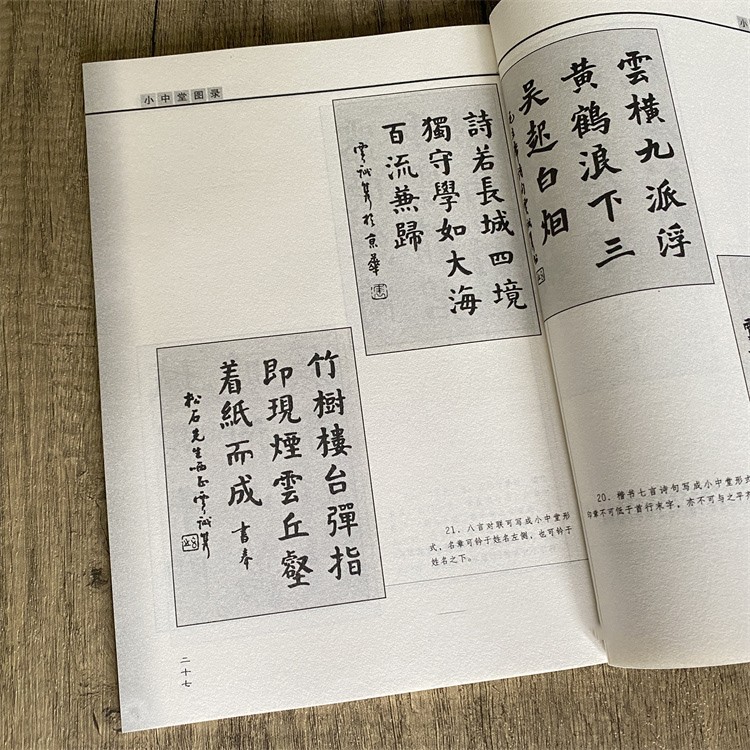 小中堂图录
詩若長城四境
獨守學如大海
百流兼歸
雲誠筆於京華
竹樹樓台彈指
即現煙雲丘壑
着紙而成
書奉
松石先生西正雲誠筆
21. 八言对联可写成小中堂形
式，名章可钤于姓名左侧，也可钤于
姓名之下。
二十七
雲横九派浮
黄鶴浪下三
吴起白烟
20. 楷书七言诗句写成小中堂形式
印章不可低于首行末字，亦不可与之平齐